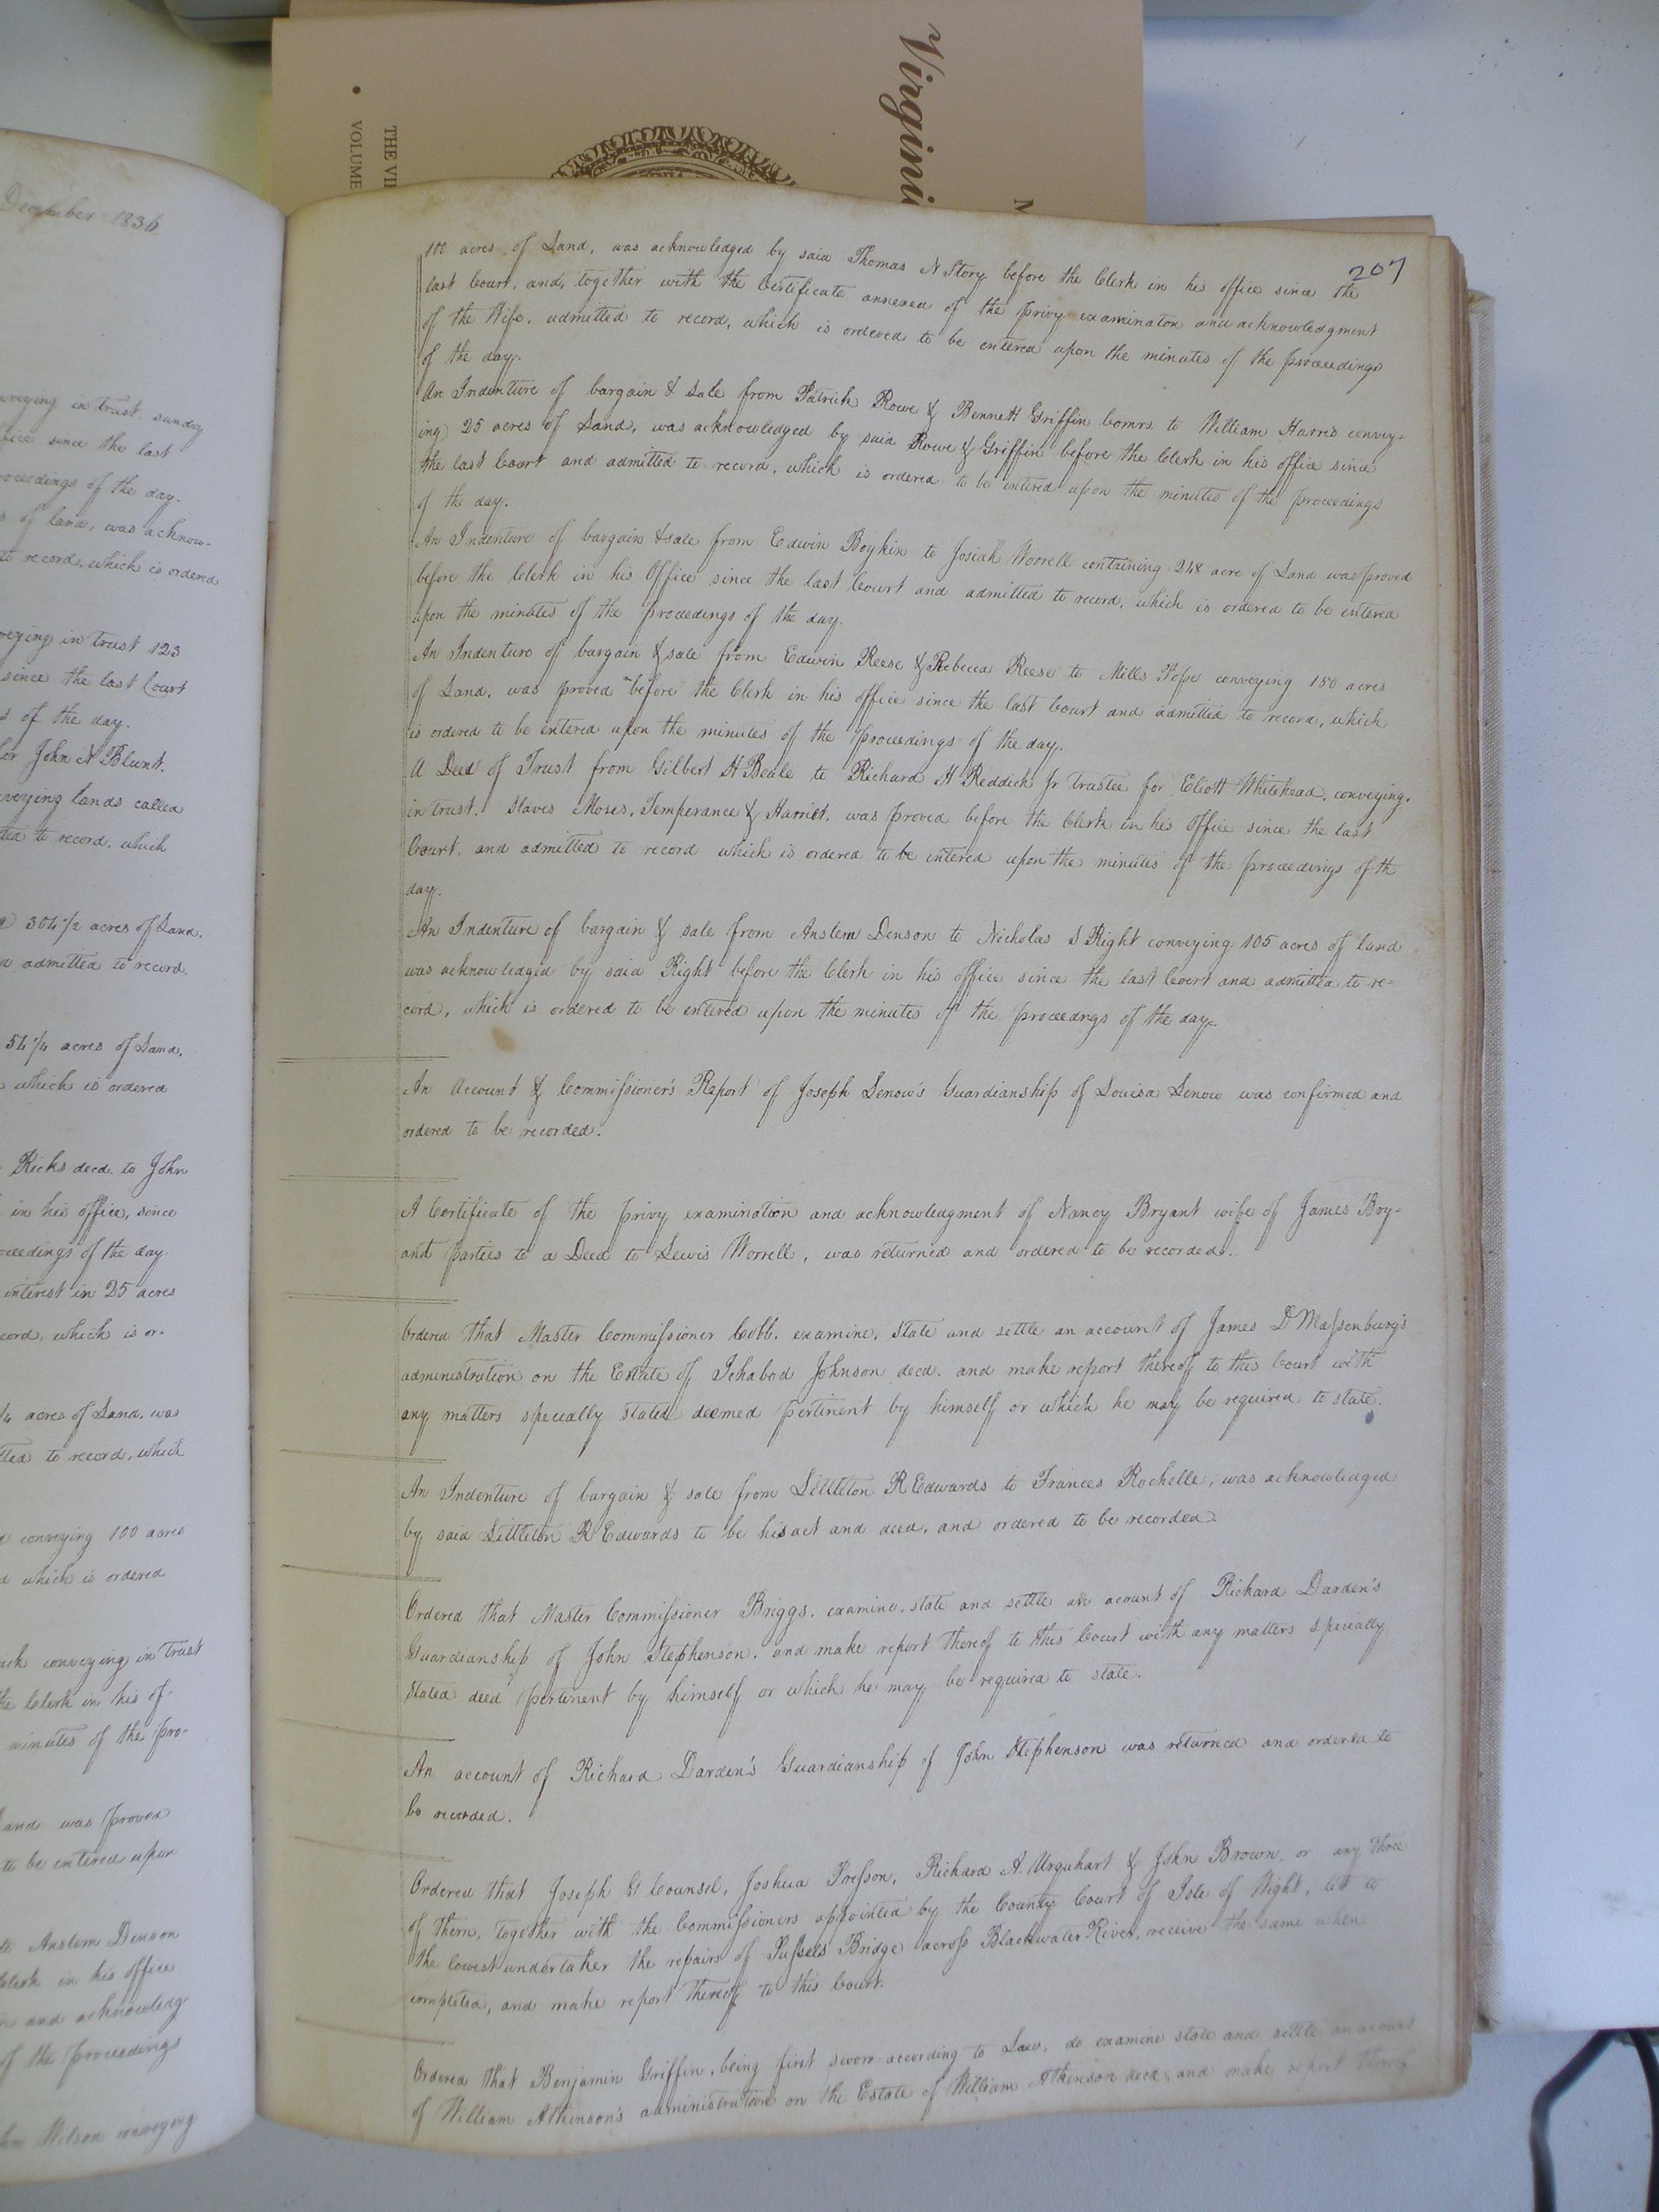 Virgini
THE VI
VOLUME
December 1836
veying in trust sundry
ffice since the last
roceedings of the day.
s of land, was acknow-
to record, which is ordered
veying in trust 123
since the last Court
s of the day.
for John N Blunt.
nveying lands called
ted to record, which
304 1/2 acres of Land.
admitted to record.
54 1/4 acres of Land.
which is ordered
Ricks decd. to John
in his office, since
ceedings of the day
interest in 25 acres
cord, which is or-
1/4 acres of Land, was
tted to record, which
conveying 100 acres
d which is ordered
ack conveying in trust
he Clerk in his of-
minutes of the pro-
and was proved
to be entered upon
to Anslem Denson
Clerk in his office
and acknowledg-
of the proceedings
Wilson conveying
207
100 acres of Land, was acknowledged by said Thomas N Story before the Clerk in his office since the
last Court, and, together with the Certificate annexed of the privy examination and acknowledgment
of the Wife, admitted to record, which is ordered to be entered upon the minutes of the proceedings
of the day.
An Indenture of bargain & sale from Patrick Rowe & Bennett Griffin Comrs. to William Harris convey-
ing 25 acres of Land, was acknowledged by said Rowe & Griffin before the Clerk in his office since
the last Court and admitted to record, which is ordered to be entered upon the minutes of the proceedings
of the day.
An Indenture of bargain & sale from Edwin Boykin to Josiah Worrell containing 248 acre of Land was proved
before the Clerk in his Office since the last Court and admitted to record, which is ordered to be entered
upon the minutes of the proceedings of the day.
An Indenture of bargain & sale from Edwin Reese & Rebecca Reese to Mills Pope conveying 150 acres
of Land, was proved before the Clerk in his office since the last Court and admitted to record, which
is ordered to be entered upon the minutes of the proceedings of the day.
A Deed of Trust from Gilbert H Beale to Richard H Reddick Jr trustee for Eliott Whitehead, conveying,
in trust, Slaves Moses, Temperance & Harriet, was proved before the Clerk in his office since the last
Court, and admitted to record which is ordered to be entered upon the minutes of the proceedings of th
day.
An Indenture of bargain & sale from Anslem Denson to Nicholas S Right conveying 105 acres of land
was acknowledged by said Right before the Clerk in his office since the last Court and admitted to re-
cord, which is ordered to be entered upon the minutes of the proceedngs of the day.
An Account & Commissioner's Report of Joseph Lenow's Guardianship of Louisa Lenow was confirmed and
ordered to be recorded.
A Certificate of the privy examination and acknowledgment of Nancy Bryant wife of James Bry-
ant parties to a Deed to Lewis Worrell, was returned and ordered to be recorded.
Ordered that Master Commissioner Cobb, examine, state and settle an account of James D Massenburg's
administration on the Estate of Ichabod Johnson decd. and make report thereof to this Court with
any matters specially stated deemed pertinent by himself or which he may be required to state.
An Indenture of bargain & sale from Littleton R Edwards to Frances Rochelle, was acknowledged
by said Littleton R Edwards to be his act and deed, and ordered to be recorded.
Ordered that Master Commissioner Briggs, examine, state and settle an acount of Richard Darden's
Guardianship of John Stephenson, and make report thereof to this Court with any matters specially
stated deed pertinent by himself or which he may be required to state.
An account of Richard Darden's Guardianship of John Stephenson was returned and ordered to
be recorded.
Ordered that Joseph G Counsel, Joshua Presson, Richard A. Urquhart & John Brown, or any three
of them, together with the Commissioners appointed by the County Court of Isle of Wight, let to
the lowest undertaker the repairs of Bridge across Blackwater River, receive the same when
completed, and make report thereof to this Court.
Ordered that Benjamin Griffin, being first sworn according to Law, do examine state and settle an account
of William Atkinson's administration on the Estate of William Atkinson decd, and make report thereof